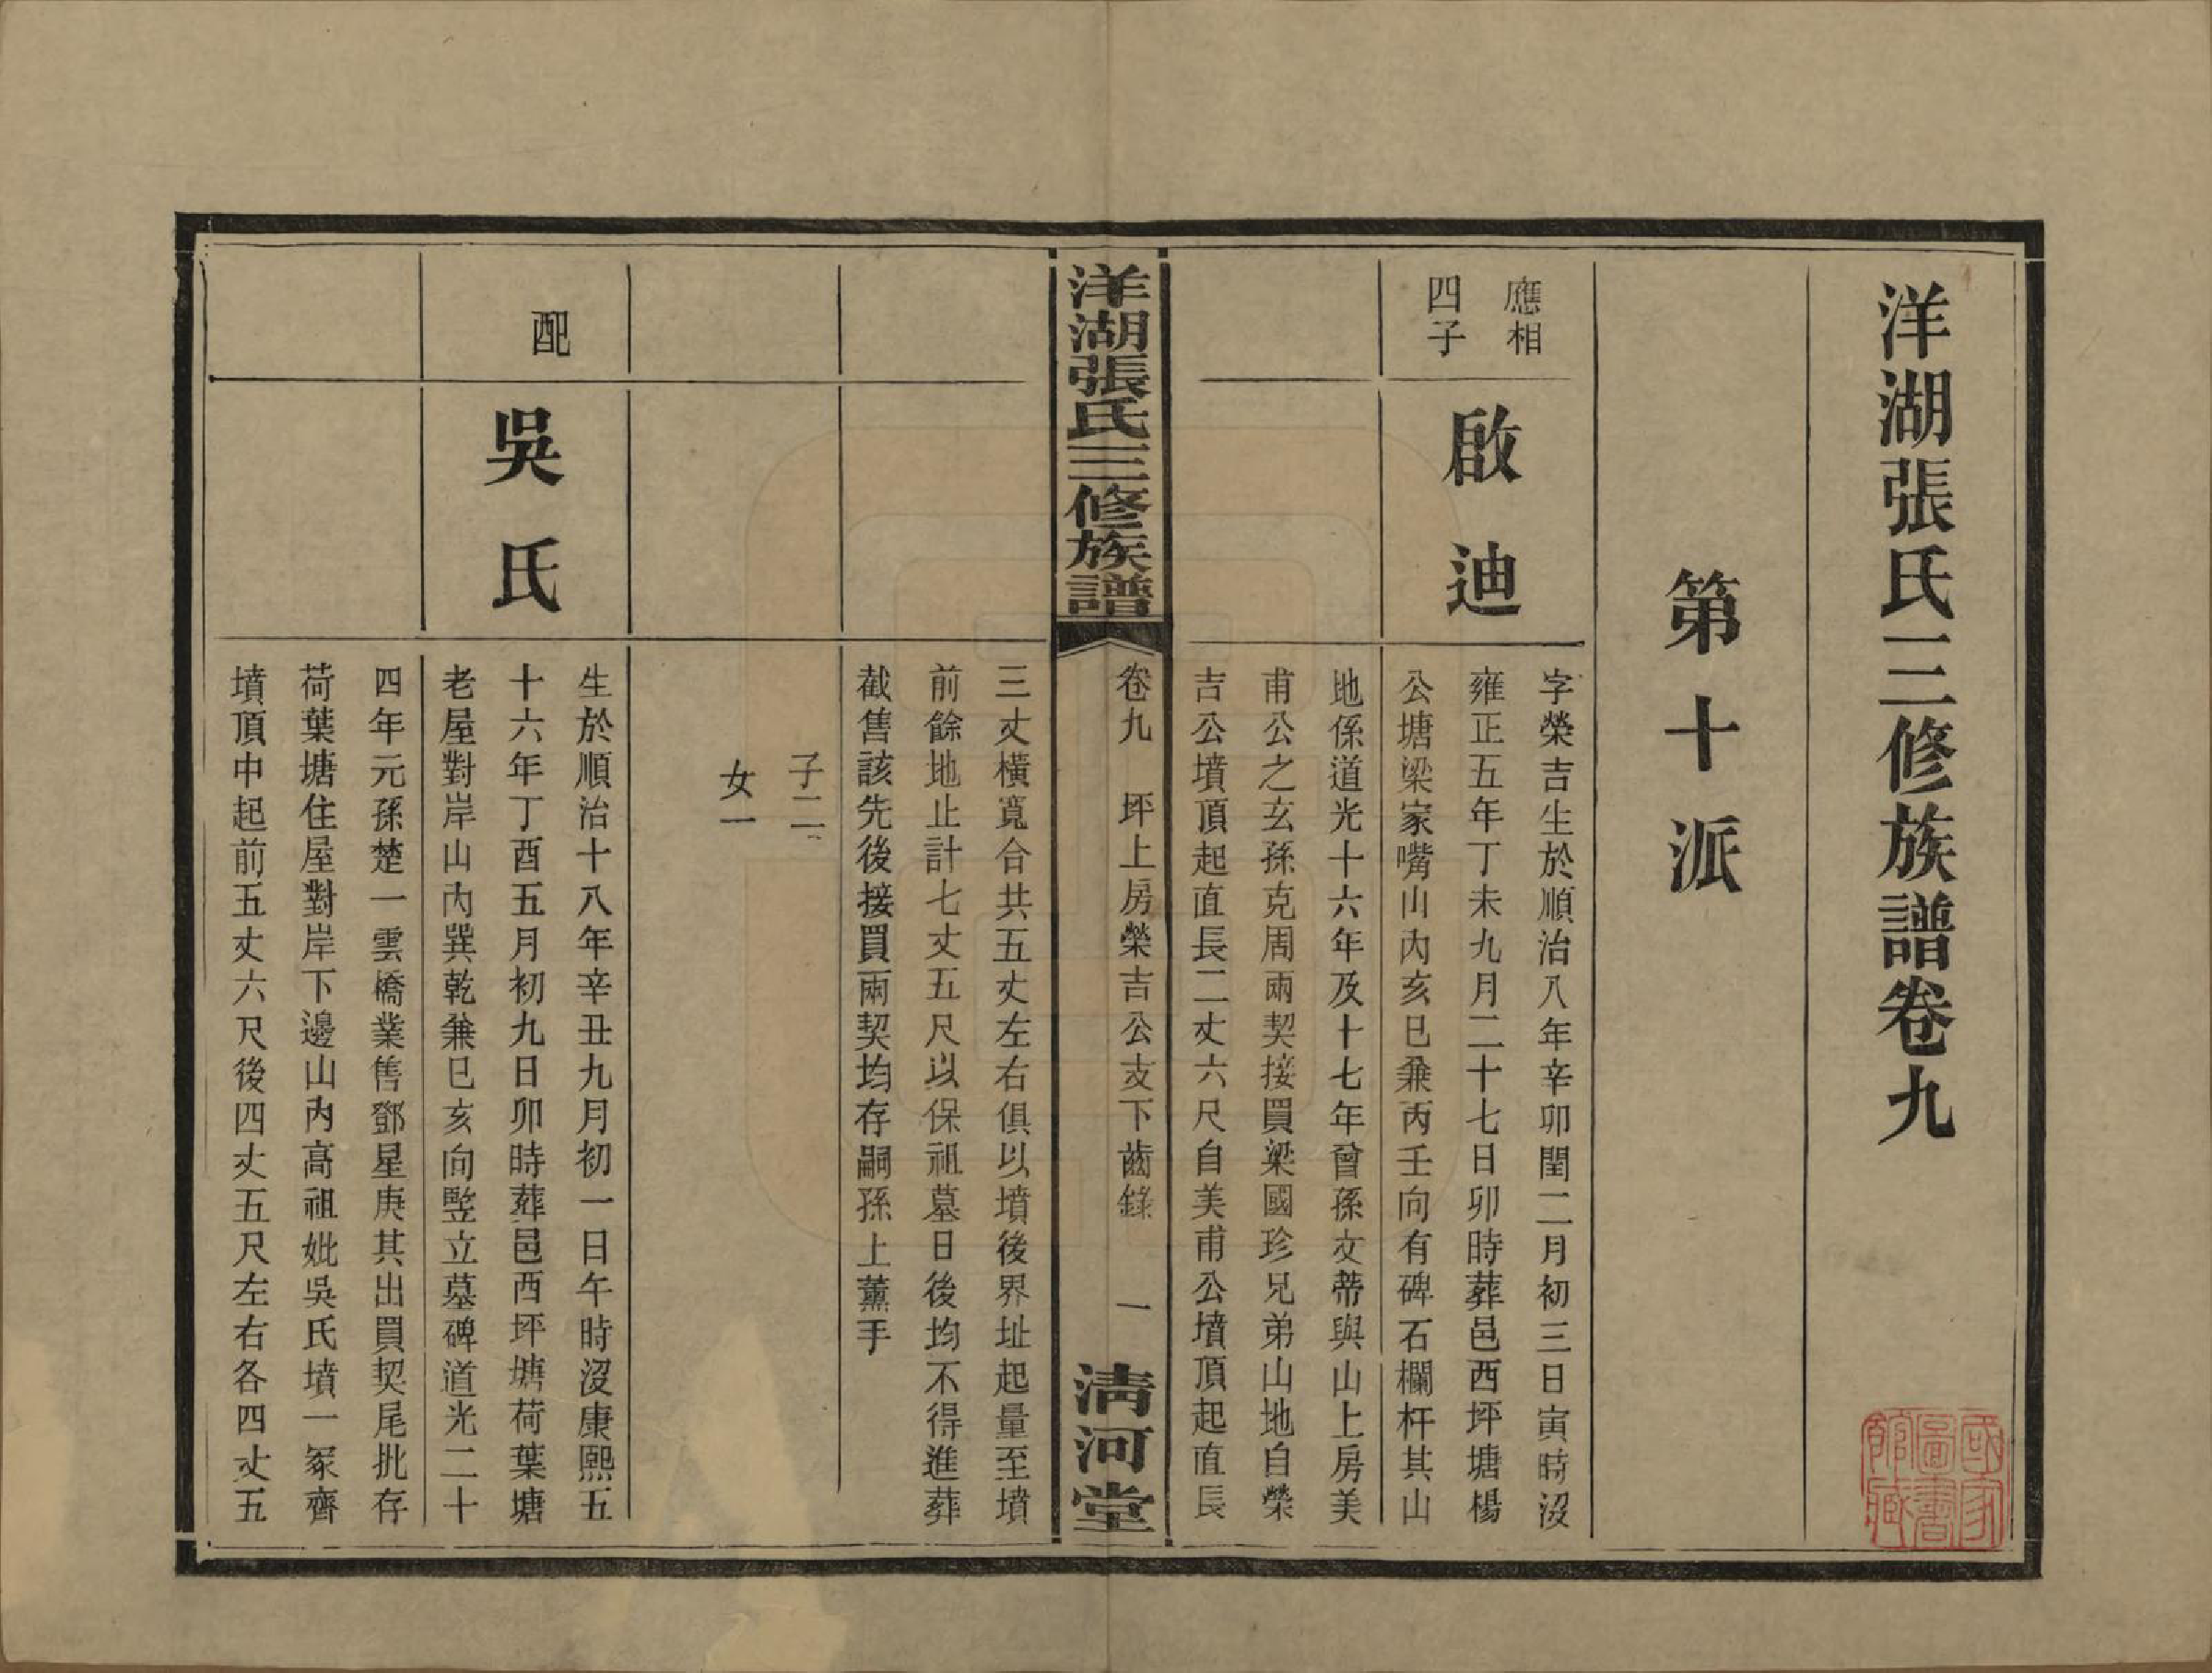 洋湖張氏三修族譜卷九
第十派
應相
四子
啟迪
字榮吉生於順治八年辛卯閏二月初三日寅時沒
雍正五年丁未九月二十七日卯時葬邑西坪塘楊
公塘梁家嘴山內亥巳兼丙壬向有碑石欄杆其山
地係道光十六年及十七年曾孫文蒂與山上房美
甫公之玄孫克周兩契接買梁國珍兄弟山地自榮
吉公墳頂起直長二丈六尺自美甫公墳頂起直長
洋湖張氏三修族譜
卷九 坪上房榮吉公支下齒錄 一
淸河堂
三丈橫寬合共五丈左右俱以墳後界址起量至墳
前餘地止計七丈五尺以保祖墓日後均不得進葬
截售該先後接買兩契均存嗣孫上薰手
子二
女一
配
吳氏
生於順治十八年辛丑九月初一日午時沒康熙五
十六年丁酉五月初九日卯時葬邑西坪塘荷葉塘
老屋對岸山內巽乾兼巳亥向竪立墓碑道光二十
四年元孫楚一雲橋業售鄧星庚其出買契尾批存
荷葉塘住屋對岸下邊山內高祖妣吳氏墳一冢齊
墳頂中起前五丈六尺後四丈五尺左右各四丈五
國家圖書館藏